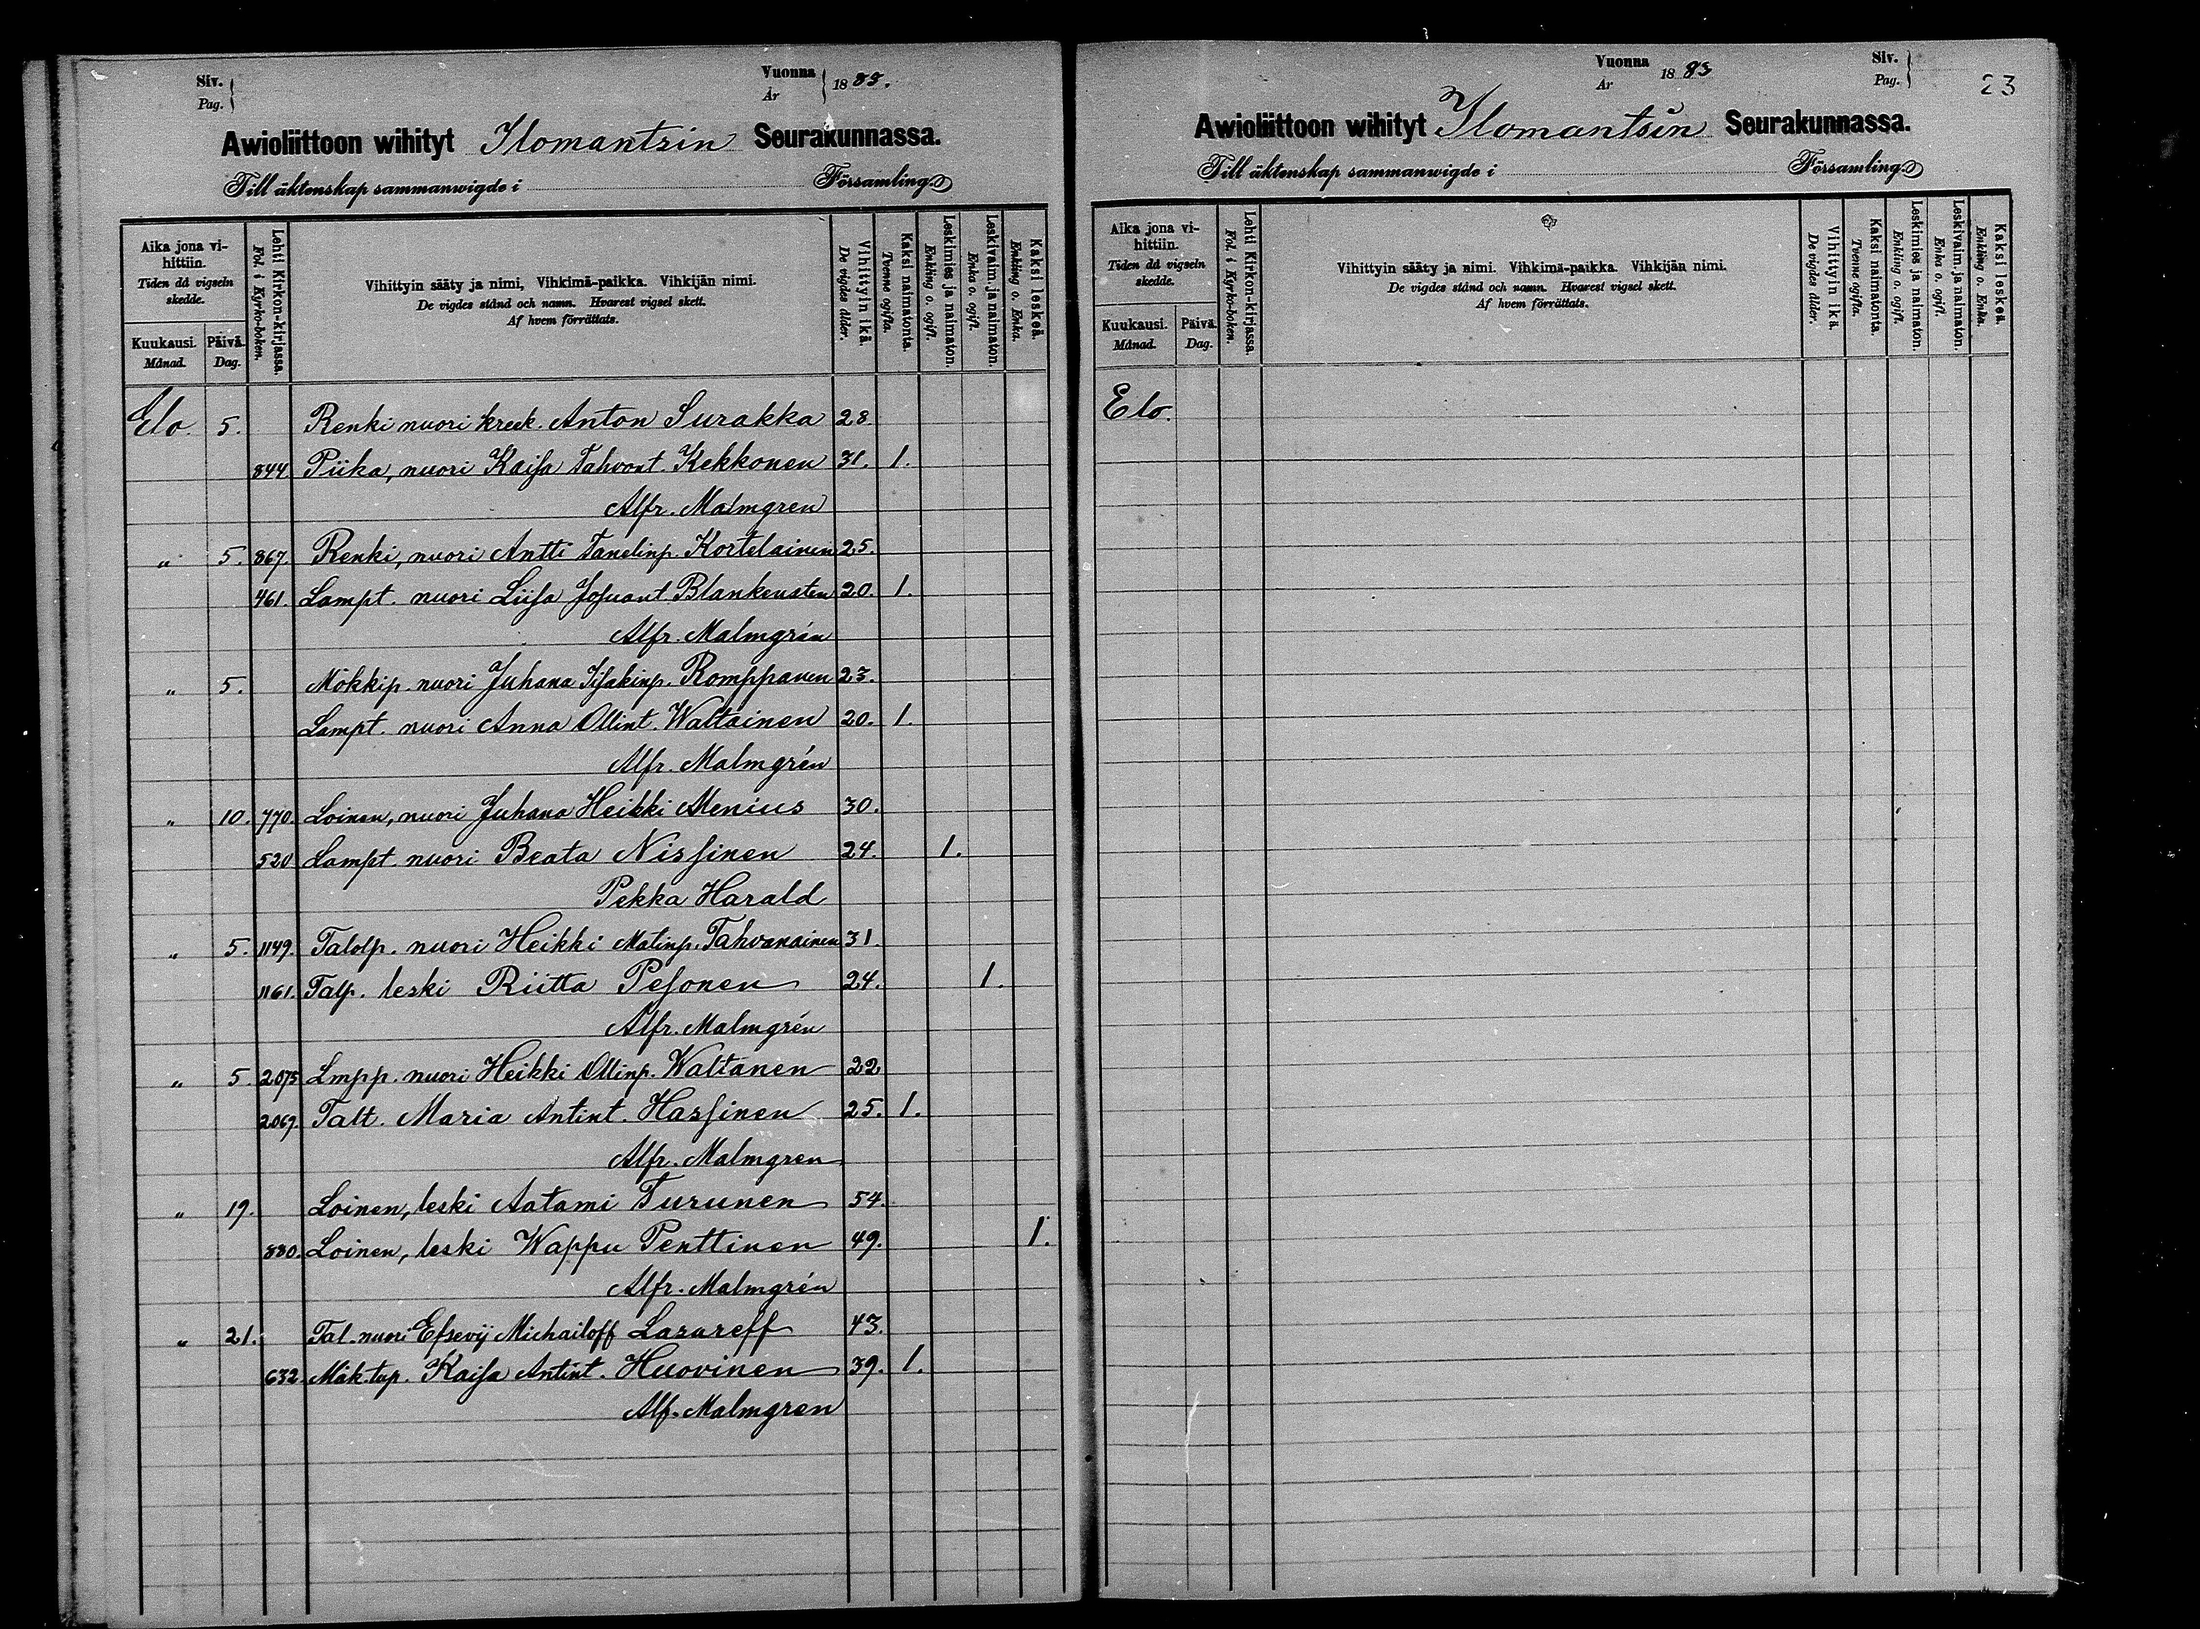 Siv.
Pag.
Vuonna
År
1883.
Awioliittoon wihityt Ilomantsin Seurakunnassa.
Till äktenskap sammanwigde i Församling.
Aika jona vi-
hittiin.
Tiden då vigseln
skedde.
Kuukausi.
Månad.
Päivä.
Dag.
Lehti Kirkon-kirjassa.
Fol. i Kyrko-boken.
Vihittyin sääty ja nimi, Vihkimä-paikka. Vihkijän nimi.
De vigdes stånd och namn. Hvarest vigsel skett.
Af hvem förrättats.
Vihittyin ikä.
De vigdes ålder.
Kaksi naimatonta.
Tvenne ogifta.
Leskimies ja naimaton.
Enkling o. ogift.
Leskivaim. ja naimaton.
Enka o. ogift.
Kaksi leskeä.
Enkling o. Enka.
Elo. 5. Renki nuori kreek. Anton Surakka 28
844 Piika, nuori Kaisa Tahvont. Kekkonen 31. 1.
Alfr. Malmgren
" 5. 867. Renki, nuori Antti Tanelinp. Kortelainen 25.
461. Lampt. nuori Liisa Josuant Blankensten 20. 1.
Alfr. Malmgrén
" 5. Mökkip. nuori Juhana Iisakinp. Romppanen 23.
Lampt. nuori Anna Ollint. Waltainen 20. 1.
Alfr. Malmgrén
" 10. 770. Loinen, nuori Juhana Heikki Menius 30.
520 Lampt. nuori Beata Nissinen 24. 1.
Pekka Harald
" 5. 1149. Talolp. nuori Heikki Matinp. Tahvanainen 31.
1161. Talp. leski Riitta Pesonen 24. 1.
Alfr. Malmgrén
" 5. 2075 Lmpp. nuori Heikki Ollinp. Waltanen 22
2069. Talt. Maria Antint. Hassinen 25. 1.
Alfr. Malmgren
" 19. Loinen, leski Aatami Turunen 54.
880. Loinen, leski Wappu Penttinen 49. 1.
Alfr. Malmgrén
" 21. Tal. nuori Efsevij Michailoff Lasareff 43.
632. Mäk. tyt. Kaisa Antint. Huovinen 39. 1.
Alf. Malmgren
Vuonna
År
1883
Siv.
Pag.
23
Awioliittoon wihityt Ilomantsin Seurakunnassa.
Till äktenskap sammanwigde i Församling.
Aika jona vi-
hittiin.
Tiden då vigseln
skedde.
Kuukausi.
Månad.
Päivä.
Dag.
Lehti Kirkon-kirjassa.
Fol. i Kyrko-boken.
Vihittyin sääty ja nimi. Vihkimä-paikka. Vihkijän nimi.
De vigdes stånd och namn. Hvarest vigsel skett.
Af hvem förrättats.
Vihittyin ikä.
De vigdes ålder.
Kaksi naimatonta.
Tvenne ogifta.
Leskimies ja naimaton.
Enkling o. ogift.
Leskivaim. ja naimaton.
Enka o. ogift.
Kaksi leskeä.
Enkling o. Enka.
Elo.